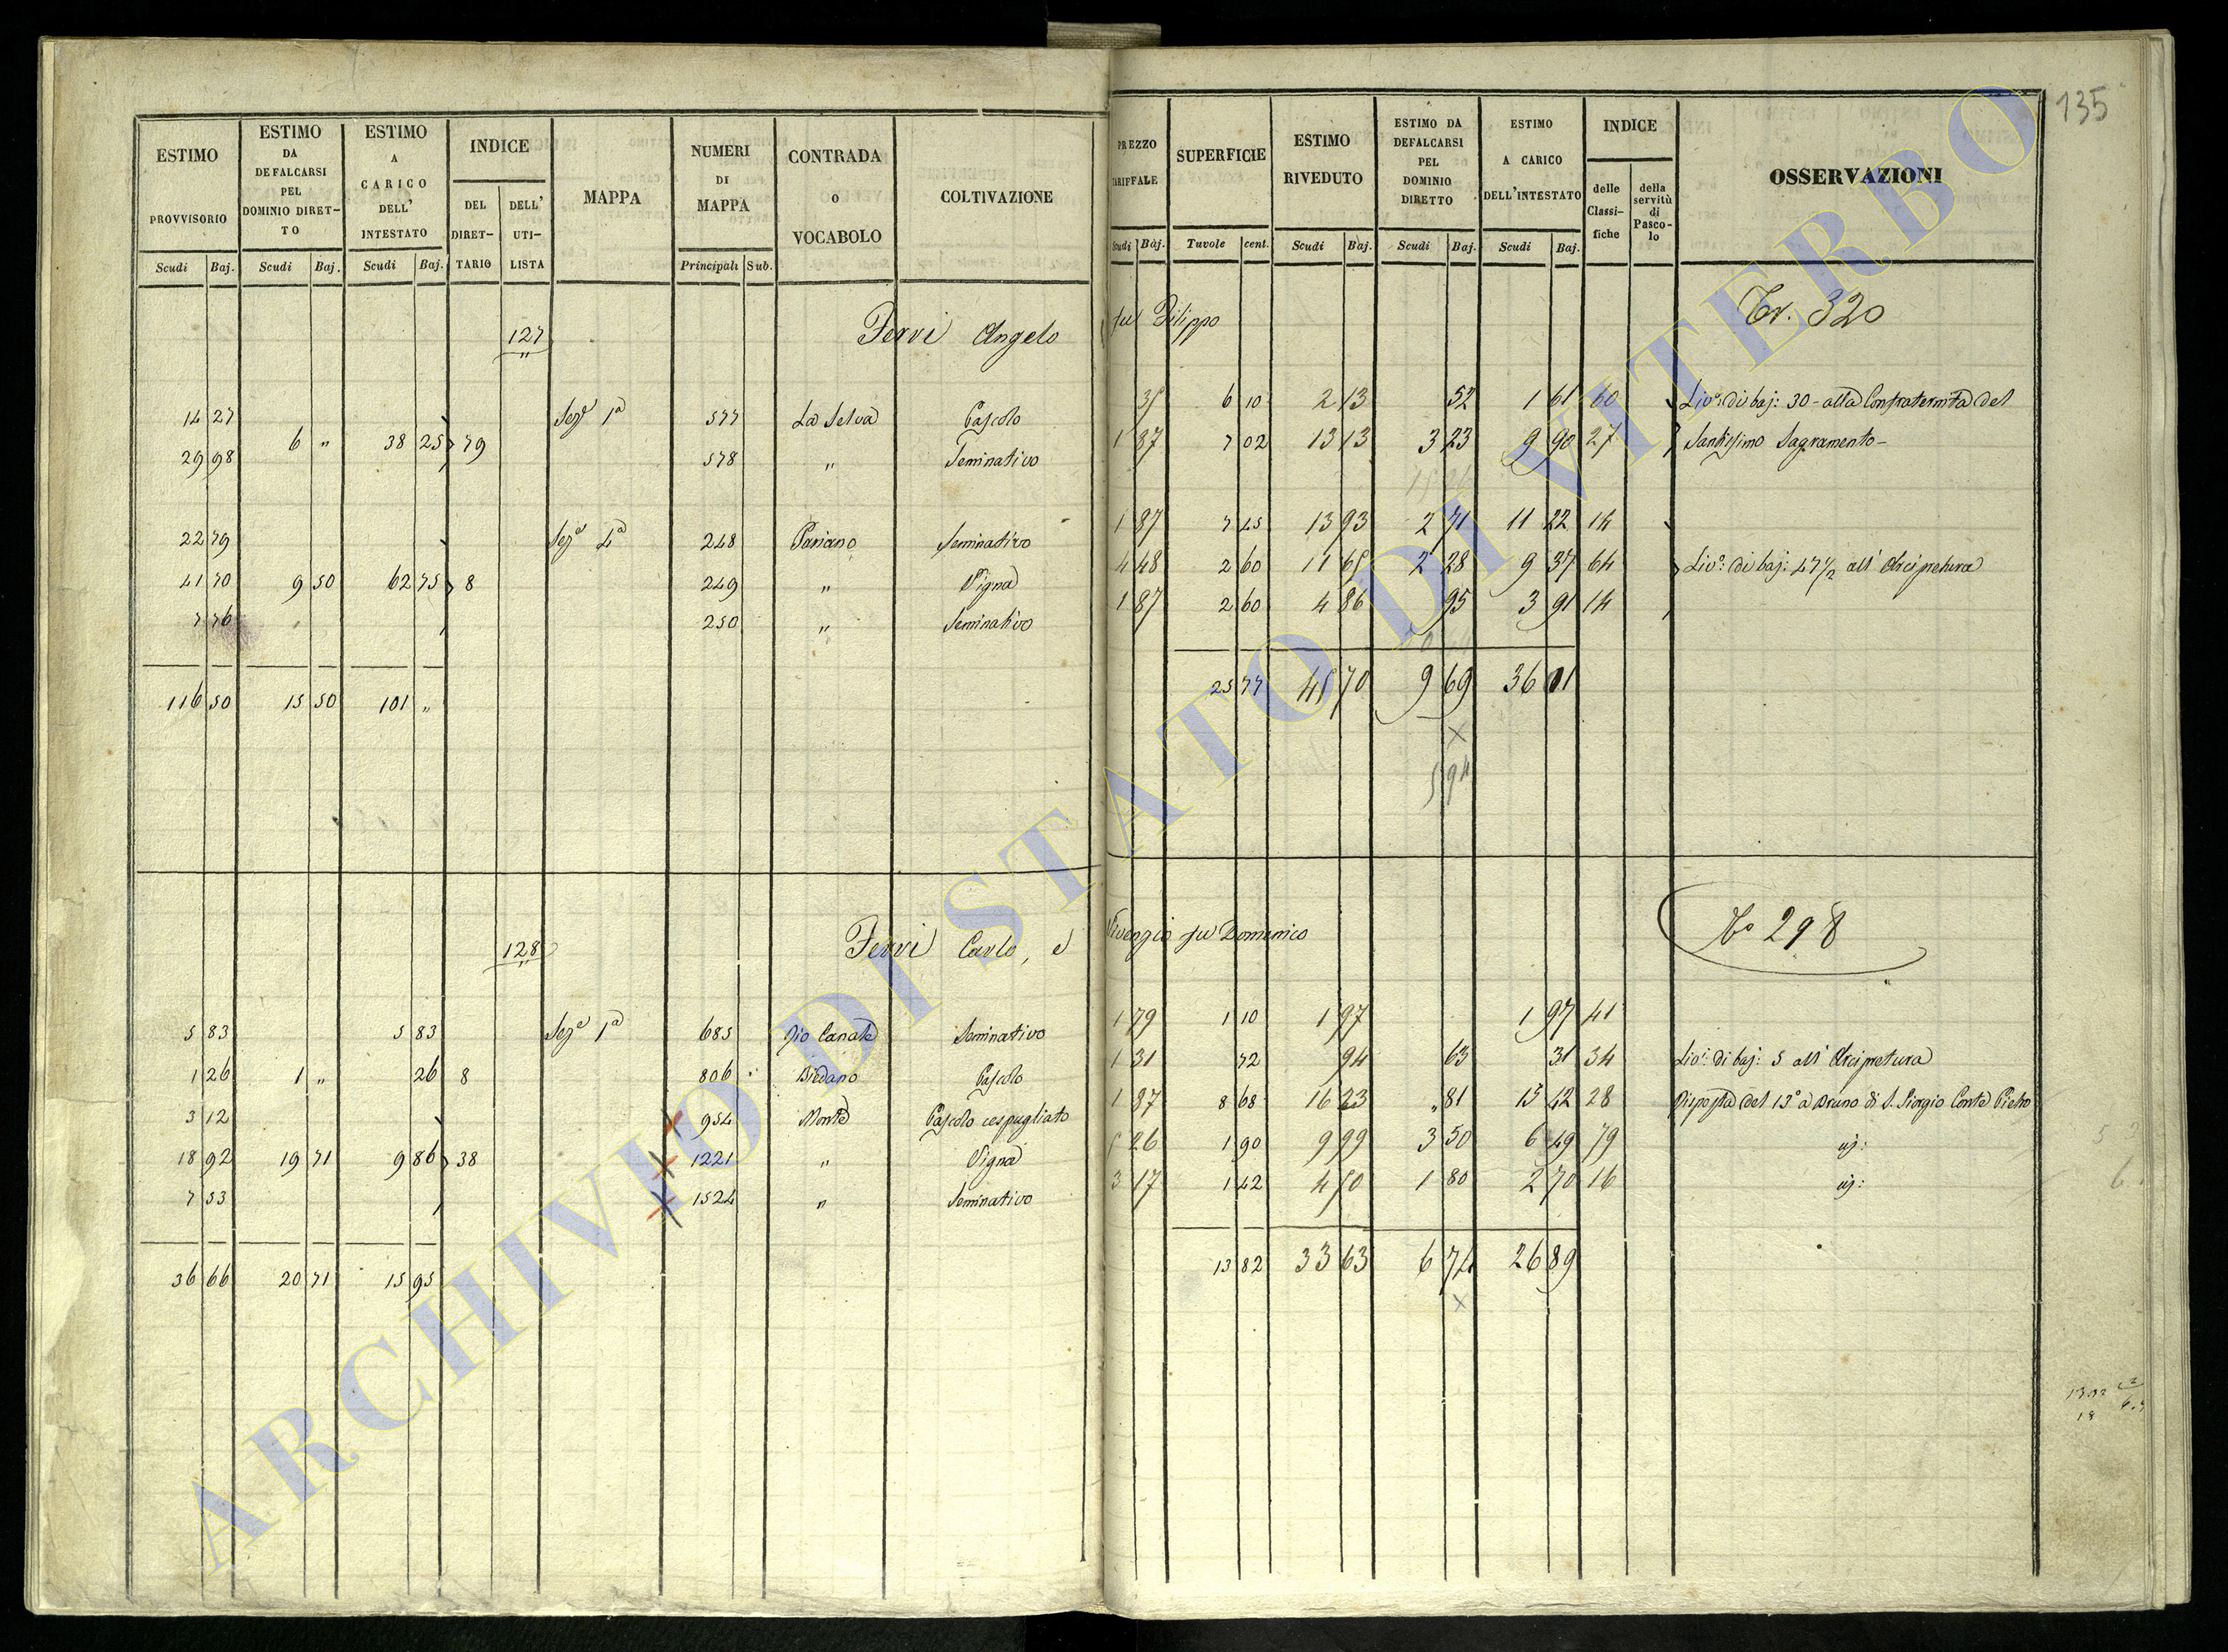 135
ESTIMO PROVVISORIO Scudi Baj.
ESTIMO DA DEFALCARSI PEL DOMINIO DIRET-TO Scudi Baj.
ESTIMO A CARICO DELL' INTESTATO Scudi Baj.
INDICE DEL DIRET-TARIO DELL' UTI-LISTA
MAPPA
NUMERI DI MAPPA Principali Sub.
CONTRADA O VOCABOLO
COLTIVAZIONE
PREZZO TARIFFALE Scudi Baj.
SUPERFICIE Tuvole cent.
ESTIMO RIVEDUTO Scudi Baj.
ESTIMO DA DEFALCARSI PEL DOMINIO DIRETTO Scudi Baj.
ESTIMO A CARICO DELL'INTESTATO Scudi Baj.
INDICE delle Classi-fiche della servitù di Pasco-lo
OSSERVAZIONI
127 Fervi Angelo fu Filippo Tr. 320
14 27 Sezᵉ 1ª 577 La Selva Pascolo 35 6 10 2 13 52 1 61 60 Livº: di baj: 30 - alla Confraternita del
6 " 38 25 79
29 98 578 " Seminativo 1 87 7 02 13 13 3 23 9 90 27 Santissimo Sagramento-
22 79 Sezᵉ 4ª 248 Pariano Seminativo 1 87 7 45 13 93 2 71 11 22 14
41 70 9 50 62 75 8 249 " Vigna 4 48 2 60 11 65 2 28 9 37 64 Livº: di baj: 47½ all' Arcipretura
7 76 250 " Seminativo 1 87 2 60 4 86 95 3 91 14
116 50 15 50 101 " 25 77 45 70 9 69 36 01
X
5 94
128 Fervi Carlo, e Vivenzio fu Domenico To 298
5 83 5 83 Sezᵉ 1ª 685 Rio Canale Seminativo 1 79 1 10 1 97 1 97 41
1 26 1 " 26 8 806 Biedano Pascolo 1 31 72 94 63 31 34 Livº: di baj: 5 all' Arcipretura
3 12 954 Monte Pascolo cespugliato 1 87 8 68 16 23 " 81 15 42 28 Risposta del 13º a Bruno di S. Giorgio Conte Pietro
18 92 19 71 9 86 38 1221 " Vigna 5 26 1 90 9 99 3 50 6 49 79
7 53 1524 " Seminativo 3 17 1 42 4 50 1 80 2 70 16
36 66 20 71 15 95 13 82 33 63 6 74 26 89
X
ARCHIVIO DI STATO DI VITERBO